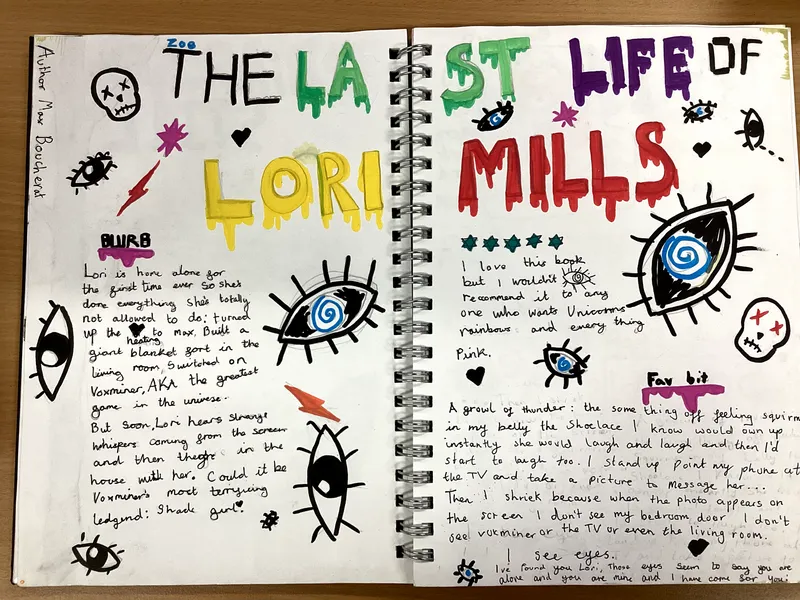 Zoe
THE LAST LIFE OF
LORI MILLS
Author Max Boucherat
BLURB
Lori is home alone for
the first time ever so she's
done everything she's totally
not allowed to do; turned
up the heating to max, Built a
giant blanket fort in the
living room, switched on
Voxminer, AKA the greatest
game in the universe.
But soon, Lori hears strange
whispers coming from the screen
and then in the
house with her. Could it be
Voxminer's most terrifying
ledgend: Shade girl
I love this book
but I wouldn't
recommend it to any
one who wants Unicorns
rainbows and every thing
Pink.
Fav bit
A growl of thunder: the same thing off feeling squirm
in my belly the Shoelace I know would own up
instantly she would laugh and laugh and then I'd
start to laugh too. I stand up Point my phone at
the TV and take a Picture to Message her...
Then I shriek because when the photo appears on
the screen I don't see my bedroom door I don't
see voxminer or the TV or even the living room.
I see eyes.
I've found you Lori, Those eyes seem to say you are
alone and you are mine and I have come for you.